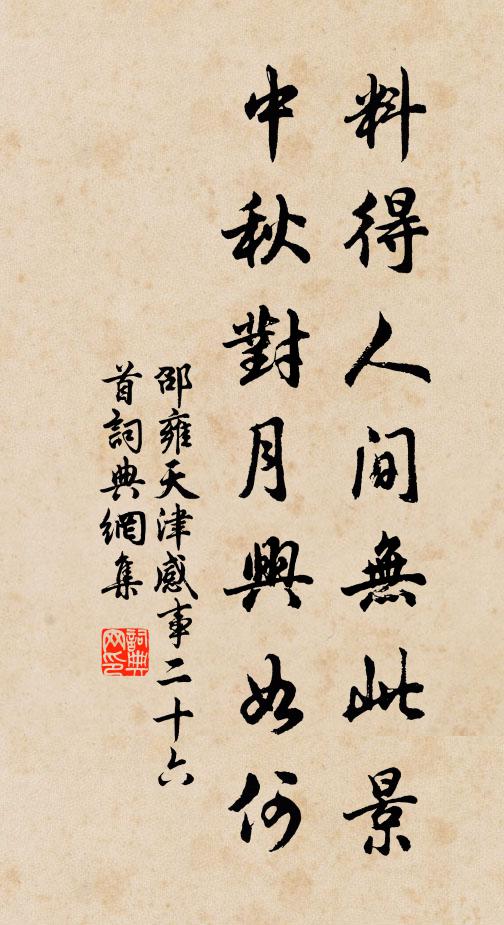 料得人間無此景
中秋對月興如何
邵雍天津感事二十六
首詞典網集
詞典
网印